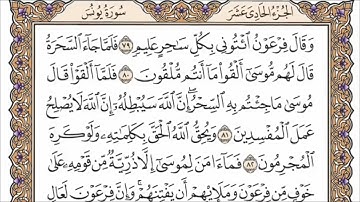 الجزء الحادي عشر
سورة يونس
وَقَالَ فِرْعَوْنُ ٱئْتُونِي بِكُلِّ سَٰحِرٍ عَلِيمٍ ٧٩ فَلَمَّا جَآءَ ٱلسَّحَرَةُ
قَالَ لَهُم مُّوسَىٰٓ أَلْقُوا۟ مَآ أَنتُم مُّلْقُونَ ٨٠ فَلَمَّآ أَلْقَوْا۟ قَالَ
مُوسَىٰ مَا جِئْتُم بِهِ ٱلسِّحْرُ إِنَّ ٱللَّهَ سَيُبْطِلُهُۥٓ إِنَّ ٱللَّهَ لَا يُصْلِحُ
عَمَلَ ٱلْمُفْسِدِينَ ٨١ وَيُحِقُّ ٱللَّهُ ٱلْحَقَّ بِكَلِمَٰتِهِۦ وَلَوْ كَرِهَ
ٱلْمُجْرِمُونَ ٨٢ فَمَآ ءَامَنَ لِمُوسَىٰٓ إِلَّا ذُرِّيَّةٌ مِّن قَوْمِهِۦ عَلَىٰ
خَوْفٍ مِّن فِرْعَوْنَ وَمَلَإِي۟هِمْ أَن يَفْتِنَهُمْ وَإِنَّ فِرْعَوْنَ لَعَالٍ